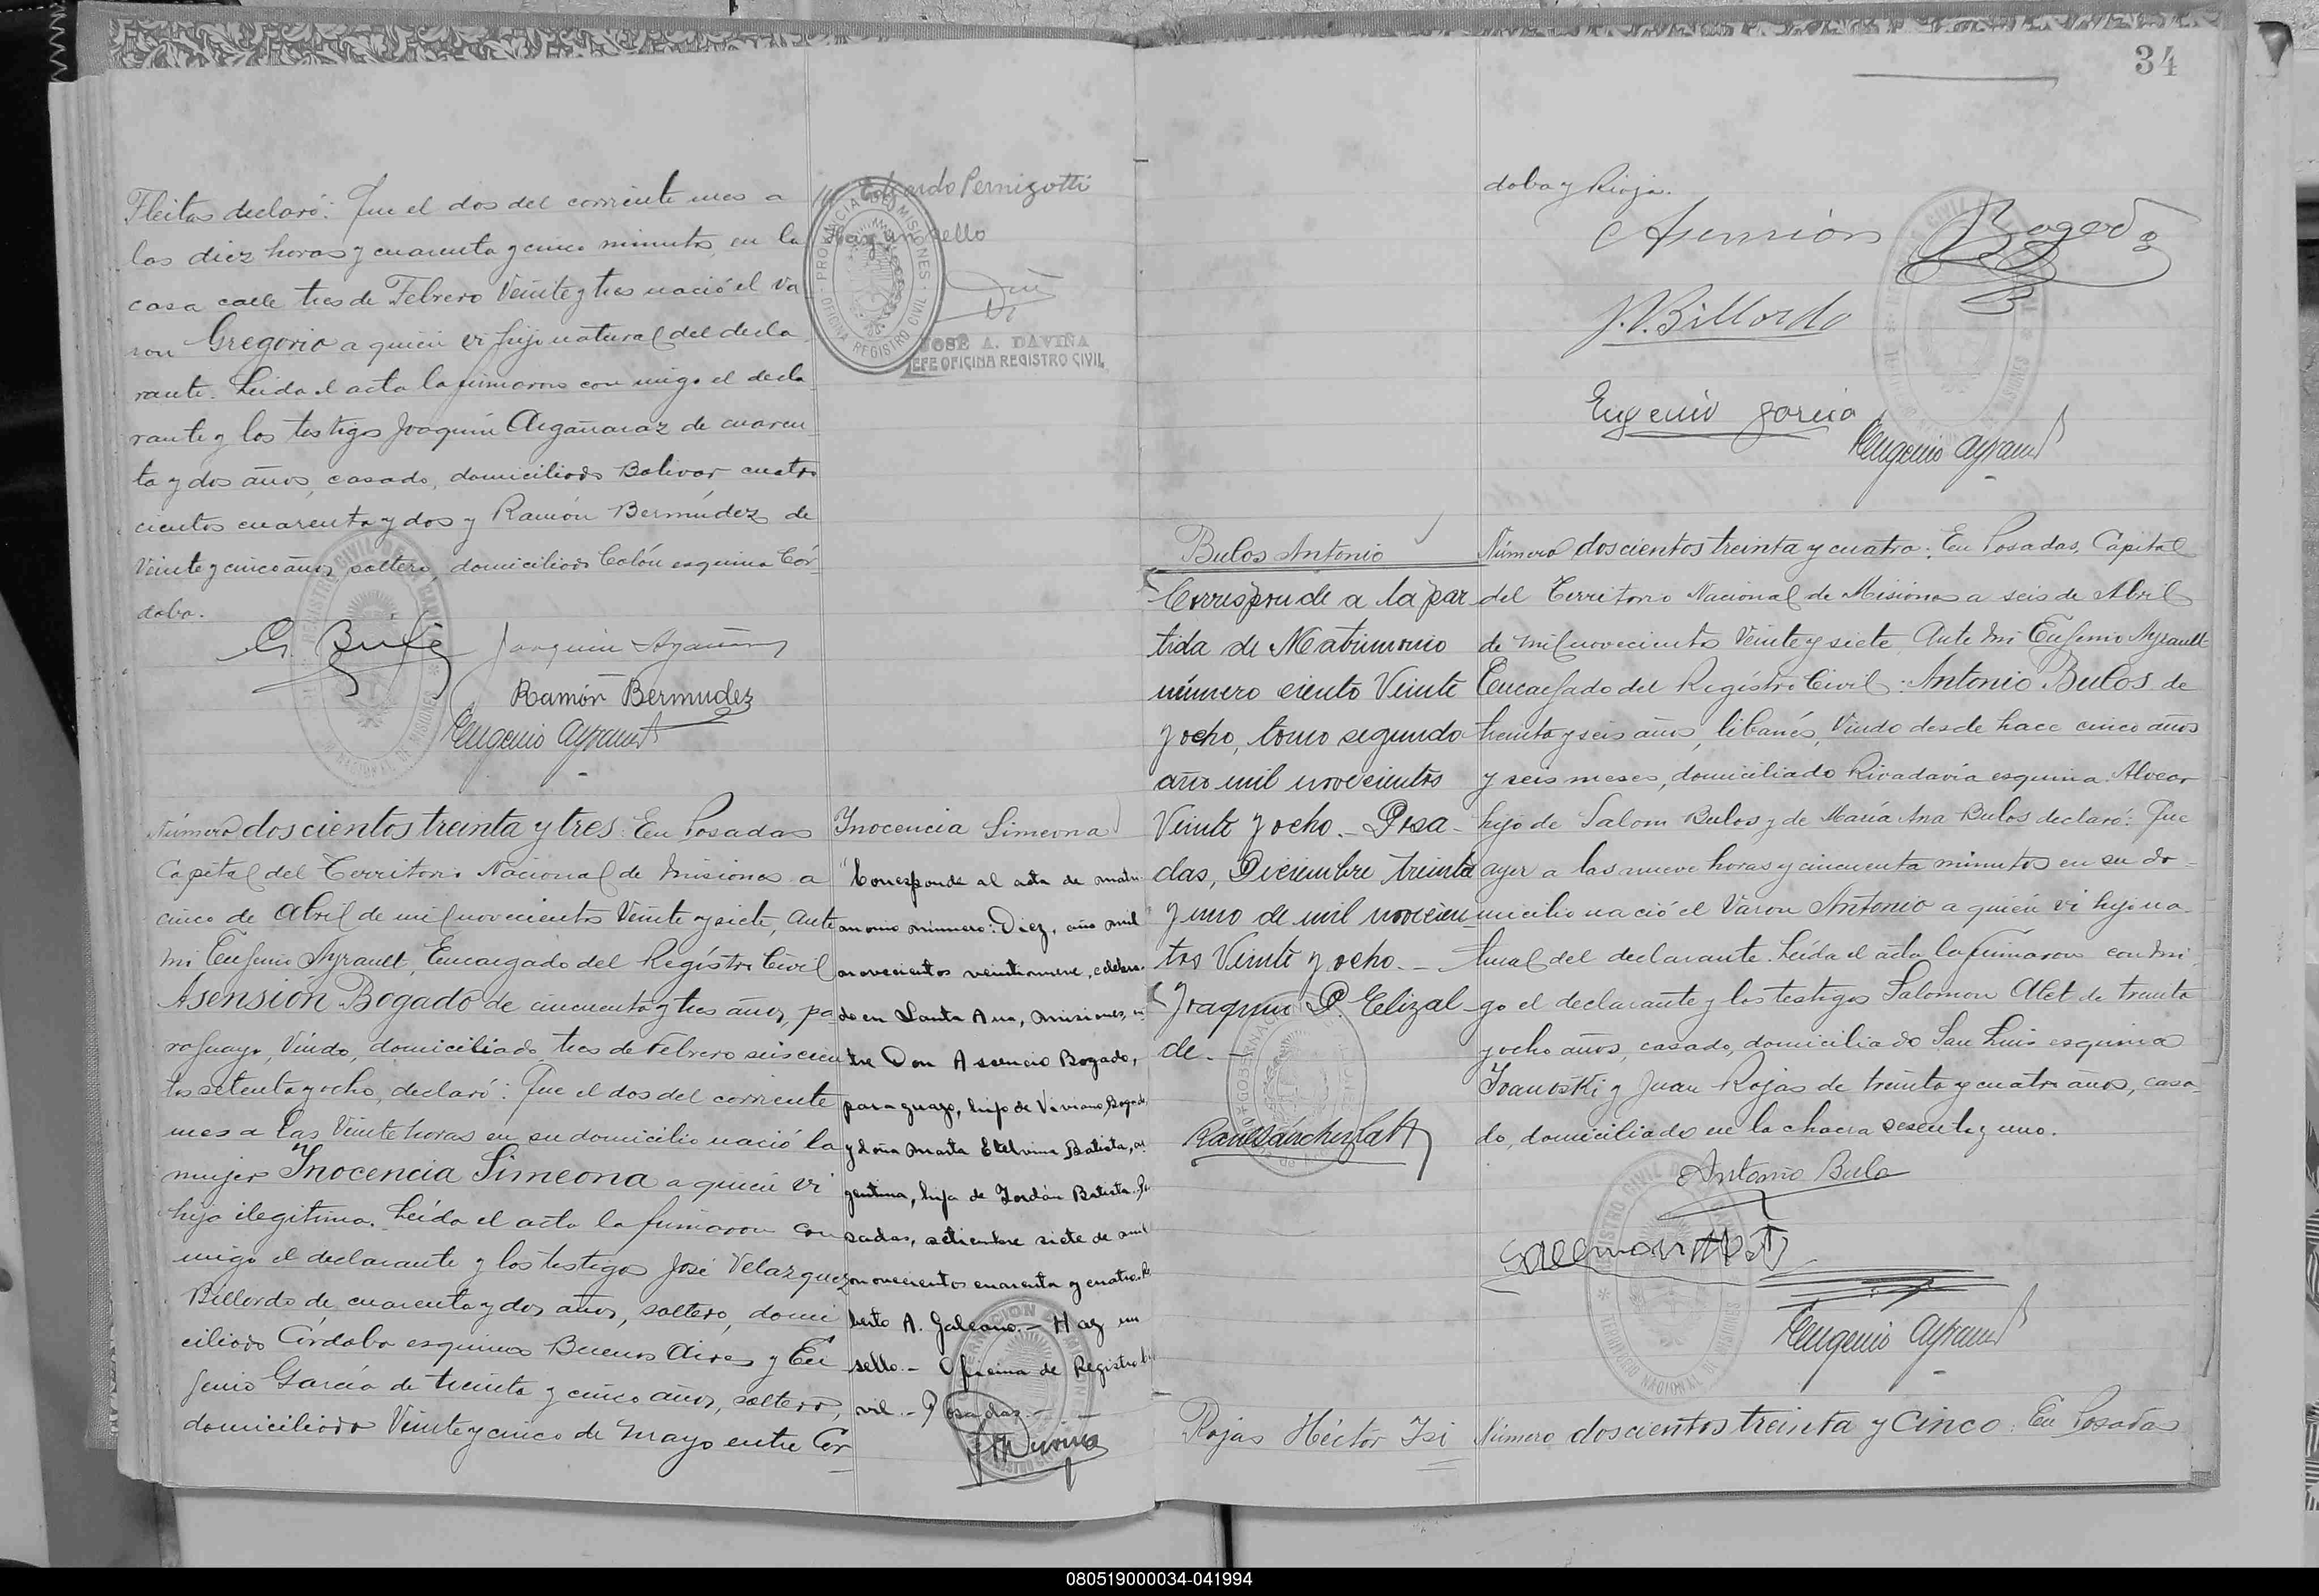 Fleitas declaró: Que el dos del corriente mes a
las diez horas y cuarenta y cinco minutos, en la
casa calle tres de Febrero Veinte y tres nació el va
ron Gregorio a quién vi hijo natural del decla
rante. Leida el acta la firmaron con migo el decla
rante y los testigos Joaquín Argañaraz de cuaren
ta y dos años, casado, domiciliado Bolivar cuatro
cientos cuarenta y dos y Ramón Bermúdez de
Veinte y cinco años, soltero, domiciliado Colón esquina Cór
doba.
Joaquin
Ramón Bermudez
Eugenio Ayrault
Eduardo Pernigotti
Hay un sello
PROVINCIA DE MISIONES
OFICINA REGISTRO CIVIL
JOSÉ A. DAVIÑA
JEFE OFICINA REGISTRO CIVIL
Número doscientos treinta y tres: En Posadas
Capital del Territorio Nacional de Misiones a
cinco de Abril de mil novecientos Veinte y siete, ante
mi Eugenio Ayrault, Encargado del Registro Civil
Asensión Bogado de cincuenta y tres años, pa
raguayo, Viudo, domiciliado tres de Febrero seiscien
tos setenta y ocho, declaró: Que el dos del corriente
mes a las Veinte horas en su domicilio nació la
mujer Inocencia Simeona a quién vi
hija ilegitima. Leída el acta la firmaron con
migo el declarante y los testigos José Velazquez
Billordo de cuarenta y dos años, soltero, domi
ciliado Córdoba esquina Buenos Aires y Eu
genio García de treinta y cinco años, soltero,
domiciliado Veinte y cinco de Mayo entre Cór
Inocencia Simeona
"Corresponde al acta de matri
monio número: Diez, año mil
novecientos veintinueve, celebra
do en Santa Ana, Misiones, en
tre Don Asencio Bogado,
paraguayo, hijo de Viviano Bogado
y doña Marta Etelvina Batista, ar
gentina, hija de Jordán Batista. Po
sadas, setiembre siete de mil
novecientos cuarenta y cuatro. Ro
berto A. Galeano.- Hay un
sello.- Oficina de Registro Ci
vil.- Posadas.-
34
doba y Rioja.
Asensión Bogado
J. V. Billordo
Eugenio Garcia
Eugenio Ayrault
Bulos Antonio
Corresponde a la par
tida de Matrimonio
número ciento Veinte
y ocho, tomo segundo
año mil novecientos
Veinte y ocho.- Posa
das, Diciembre treinta
y uno de mil novecien
tos Veinte y ocho.-
Joaquín P. Elizal
de.-
Número doscientos treinta y cuatro: En Posadas, Capital
del Territorio Nacional de Misiones a seis de Abril
de mil novecientos Veinte y siete, Ante mi Eugenio Ayrault
Encargado del Registro Civil: Antonio Bulos de
treinta y seis años, libanés, Viudo desde hace cinco años
y seis meses, domiciliado Rivadavia esquina Alvear
hijo de Salom Bulos y de María Ana Bulos declaró: Que
ayer a las nueve horas y cincuenta minutos en su do
micilio nació el Varon Antonio a quién vi hijo na
tural del declarante. Leída el acta la firmaron con mi
go el declarante y los testigos Salomon Alet de treinta
y ocho años, casado, domiciliado San Luis esquina
Ivanoski y Juan Rojas de treinta y cuatro años, casa
do, domiciliado en la chacra sesenta y uno.
Antonio Bulo
Eugenio Ayrault
REGISTRO CIVIL
TERRITORIO NACIONAL DE MISIONES
Rojas Héctor Isi
Número doscientos treinta y cinco: En Posadas
080519000034-041994